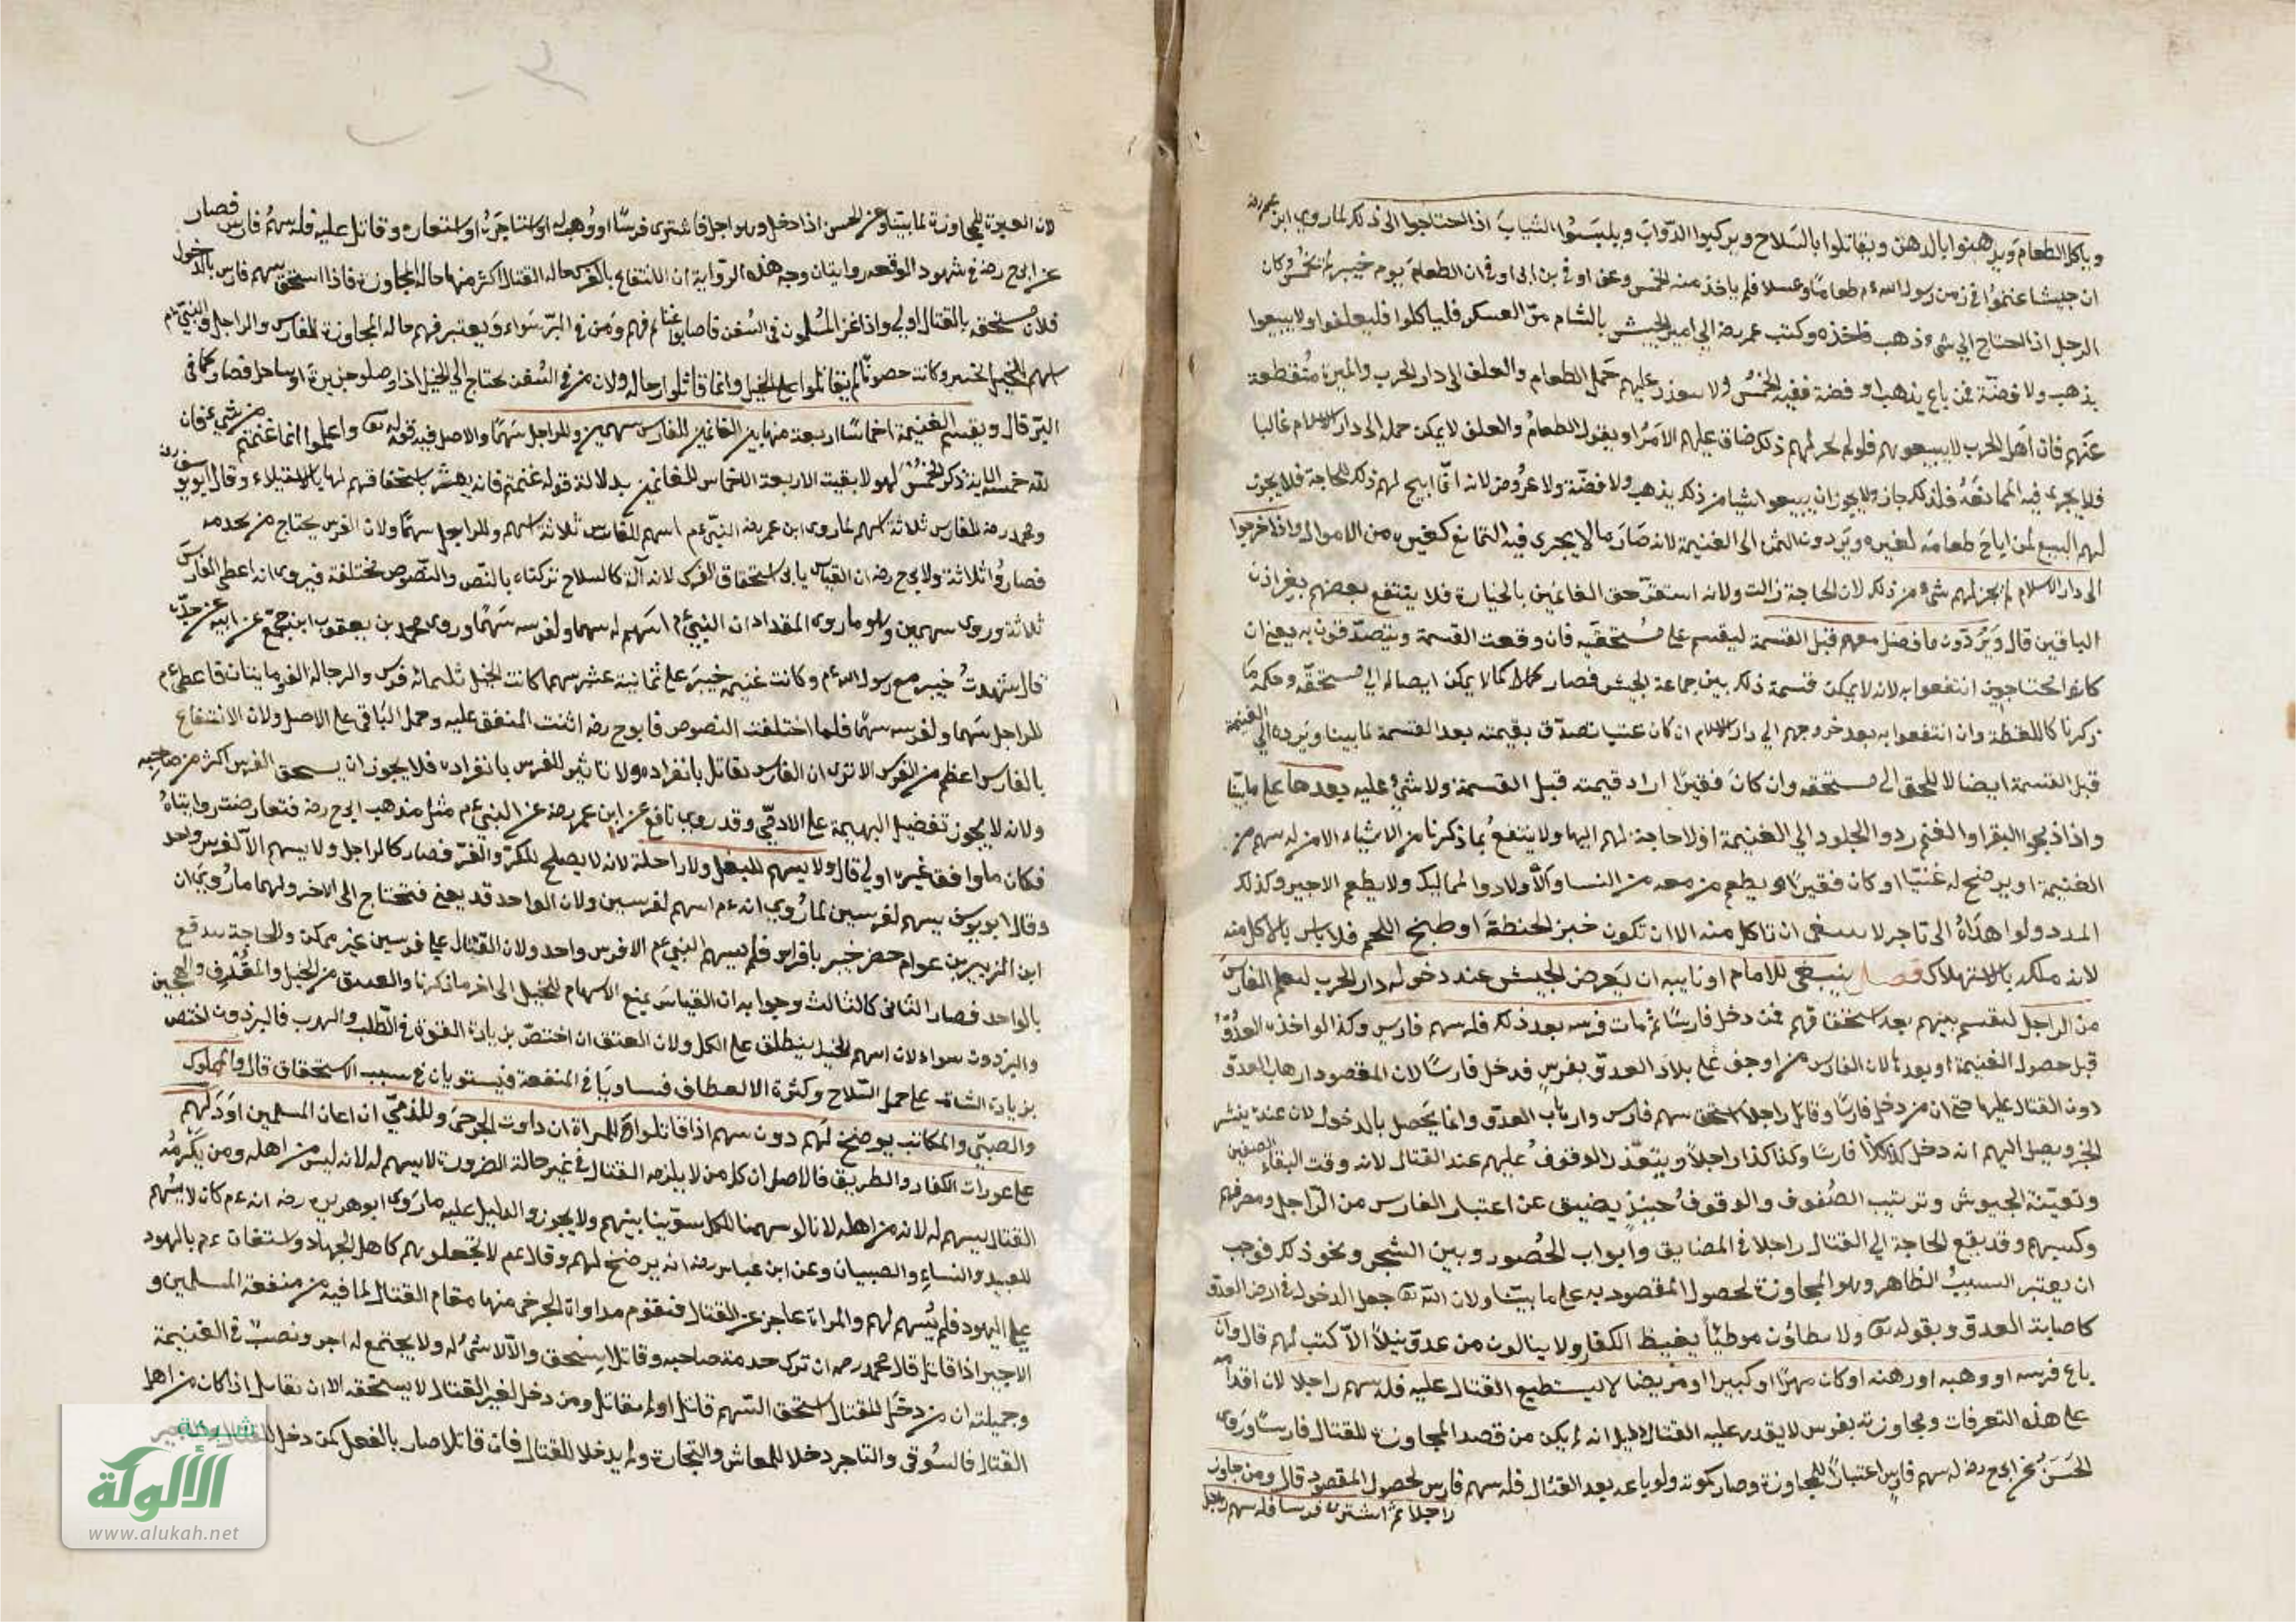 وياكلوا الطعام ويدهنوا بالدهن ويقاتلوا بالسلاح ويركبوا الدواب ويلبسوا الثياب اذا احتاجوا الى ذلك لما روي ابن عمر رضه
ان جيشا غنموا في زمن رسول الله ءم طعاما وعسلا فلم ياخذ منه الخمس وعن اوفي بن ابي اوفي ان الطعام يوم خيبر لم يخمس وكان
الرجل اذا احتاج الي شيء ذهب فاخذه وكتب عمر رضه الي امير الجيش بالشام مر العسكر فلياكلوا فليعلفوا ولا يبيعوا
بذهب ولا فضة فمن باع بذهب او فضة ففيه الخمس ولا عليهم حمل الطعام والعلف الى دار الحرب والميرة منقطعة
عنهم فان اهل الحرب لا يبيعونهم فلو لم لهم ذلك ضاق عليهم الامر او يقول الطعام والعلف لا يمكن حمله الى دار الاسلام غالبا
فلا يجرى فيه الممانعة فلذلك جاز ولا يجوز ان يبيعوا شيا من ذلك بذهب ولا فضة ولا عروض لانه انما ابيح لهم ذلك للحاجة فلا يجوز
لهم البيع لمن اباح طعامه لغيره ويردون الثمن الى الغنيمة لانه صار مالا يجرى فيه التمانع كغيره من الاموال واذا خرجوا
الى دار الاسلام لم يجز لهم شيء من ذلك لان الحاجة زالت ولانه استقر حق الغانمين بالحيازة فلا ينتفع بعضهم بغير اذن
الباقين قال ويردون ما فضل معهم قبل القسمة ليقسم على مستحقيه فان وقعت القسمة ويتصدقون به يعني ان
كانوا محتاجين انتفعوا به لانه لا يمكن قسمة ذلك بين جماعة الجيش فصار كمال لا يمكن ايصاله الي مستحقه وحكمه ما
ذكرنا كاللقطة وان انتفعوا به بعد خروجهم الي دار الاسلام ان كان غنيا تصدق بقيمته بعد القسمة لما بينا ويرده الي الغنيمة
قبل القسمة ايصالا للحق الى مستحقه وان كان فقيرا ارد قيمته قبل القسمة ولا شيء عليه بعدها على ما بينا
واذا ذبحوا البقر او الغنم ردوا الجلود الي الغنيمة اذ لا حاجة لهم اليها ولا ينتفع بما ذكرنا من الاشياء الا من له سهم من
الغنيمة او يرضخ له غنيا او كان فقيرا ويطعم من معه من النسا والاولاد والمماليك ولا يطعم الاجير وكذلك
المدد ولو اهداه الى تاجر لا ينبغى ان تاكل منه الا ان تكون خبز الحنطة او طبخ اللحم فلا باس بالاكل منه
لانه ملكه بالاستهلاك فصل ينبغي للامام او نايبه ان يعرض الجيش عند دخوله دار الحرب ليعلم الفارس
من الراجل ليقسم بينهم بعد استحقاقهم فمن دخل فارسا ثم مات فرسه بعد ذلك فله سهم فارس وكذا لو اخذه العدو
قبل حصول الغنيمة او بعدها لان الفارس من اوجف على بلاد العدو بفرس فدخل فارسا لان المقصود ارهاب العدو
دون القتال عليها حتى ان من دخل فارسا وقاتل راجلا استحق سهم فارس وارهاب العدو وانما يحصل بالدخول لان عنده ينشر
الخبر ويصل اليهم انه دخل كذا فارسا وكذا كذا راجلا ويتعذر الوقوف عليهم عند القتال لانه وقت التقاء الصفين
وتعبئة الجيوش وترتيب الصفوف والوقوف حينئذ يضيق عن اعتبار الفارس من الراجل ومعرفتهم
وكتبهم وقد يقع الحاجة الي القتال راجلا في المضايق وابواب الحصور وبين الشجر ونحو ذلك فوجب
ان يعتبر السبب الظاهر وهو المجاوزة لحصول المقصود به على ما بينا ولان الله تعا جعل الدخول في ارض العدو
كاصابة العدو وبقوله تعا ولا يطاؤن موطئا يغيظ الكفار ولا ينالون من عدو نيلا الا كتب لهم قال وان
باع فرسه او وهبه او رهنه او كان مهرا او كبيرا او مريضا لا يستطيع القتال عليه فله سهم راجلا لان اقدامه
على هذه التصرفات ومجاوزته بفرس لا يقدر عليه القتال دليل انه لم يكن من قصد المجاوزة للقتال فارسا وروى
الحسن عن ابي ح رضه له سهم فارس اعتبارا للمجاوزة وصار كموته ولو باعه بعد القتال فله سهم فارس لحصول المقصود قال ومن جاوز
راجلا ثم اشترى فرسا فله سهم راجل
لان العبرة للمجاوزة لما بينا وعن الحسن اذا دخل وهو راجل فاشترى فرسا او وهب له او استاجره او استعاره وقاتل عليه فله سهم فارس فصار
عن ابي ح رضه في شهود الوقعه روايتان وجه هذه الرواية ان الانتفاع بالفرس حالة القتال اكثر منها حالة المجاوزة فاذا استحق سهم فارس بالدخول
فلان يستحقه بالقتال اولي واذا غزا المسلمون في السفن فاصابوا غنائم فهم ومن في البر سواء ويعتبر فيهم حالة المجاوزة للفارس والراجل والنبي ءم
اسهم الخيل بخيبر وكانت حصونا لم يقاتلوا على الخيل وانما قاتلوا رجاله ولان من في السفن يحتاج الي الخيل اذا وصلوا جزيرة او ساحلا فصار كما في
البر قال ويقسم الغنيمة اخماسا اربعة منها بين الغانمين للفارس سهمين وللراجل سهما والاصل فيه قوله تعا واعلموا انما غنمتم من شيء فان
لله خمسه الاية ذكر الخمس لهولا بقيت الاربعة الاخماس للغانمين بدلالة قوله غنمتم فانه يشعر باستحقاقهم لها بالاستيلاء وقال ابو يوسف رضه
ومحمد رحه للفارس ثلاثة اسهم لما روى ابن عمر رضه النبي ءم اسهم للفارس ثلاثة اسهم وللراجل سهما ولان الفرس يحتاج من يخدمه
فصاروا ثلاثة ولابي ح رضه ان القياس يابى استحقاق الفرس لانه آلة كالسلاح تركناه بالنص والنصوص مختلفة فيروى انه اعطى الفارس
ثلاثة وروى سهمين وهو ما روى المقداد ان النبي ءم اسهم له سهما ولفرسه سهما وروى محمد بن يعقوب ابن مجمع عن ابيه عن جده
قال شهدت خيبر مع رسول الله ءم وكانت غنيمة خيبر على ثمانية عشر سهما كانت الخيل ثلثمائه فرس والرجالة الف ومايتان فاعطى ءم
للراجل سهما ولفرسه سهما فلما اختلفت النصوص فابو ح رضه اثبت المتفق عليه وحمل الباقي على الاصل ولان الانتفاع
بالفارس اعظم من الفرس الا ترى ان الفارس يقاتل بانفراده ولا تاثير للفرس بانفراده فلا يجوز ان يستحق الفرس اكثر من صاحبه
ولانه لا يجوز تفضيل البهيمة على الادمي وقد روي نافع عن ابن عمر رضه عن النبي ءم مثل مذهب ابي ح رضه فتعارضت روايتاه
فكان ما وافق غيره اولي قال ولا يسهم للبغل ولا راحلة لانه لا يصلح للكر والفر فصار كالراجل ولا يسهم الا لفرس واحد
وقال ابو يوسف يسهم لفرسين لما روي انه ءم اسهم لفرسين ولان الواحد قد يعي فتحتاج الى الاخر ولهما ما روي ان
ابن الزبير بن عوام حضر خيبر بافراس فلم يسهم النبي ءم الا فرس واحد ولان القتال على فرسين غير ممكن والحاجة تندفع
بالواحد فصار الثاني كالثالث وجوابه ان القياس يمنع الاسهام للخيل الى اخر ما ذكرنا والعتيق من الخيل والمقرف والهجين
والبرذون سواء لان اسم الخيل ينطلق على الكل ولان العتق ان اختص بزيادة القوة في الطلب والهرب فالبرذون اختص
بزيادة الثبات على حمل السلاح وكثرة الانعطاف فتساويا في المنفعة فيستويان في سبب الاستحقاق قال والمملوك
والصبي والمكاتب يرضخ لهم دون سهم اذا قاتلوا وللمراة ان داوت الجرحى وللذمي ان اعان المسلمين او دلهم
على عورات الكفار والطريق فالاصل ان كل من لا يلزمه القتال في غير حالة الضرورة لا يسهم له لانه ليس من اهله ومن يلزمه
القتال يسهم له لانه من اهله لانا لو سهمنا للكل سوينا بينهم ولا يجوز والدليل عليه ما روى ابو هريره رضه انه ءم كان لا يسهم
للعبيد والنساء والصبيان وعن ابن عباس رضه انه يرضخ لهم وقال ءم لا تجعلوهم كاهل الجهاد واستعان ءم باليهود
على اليهود فلم يسهم لهم والمراة عاجز عن القتال فتقوم مداواة الجرحى منها مقام القتال لما فيه من منفعة المسلمين و
الاجير اذا قاتل قال محمد رحه ان ترك خدمة صاحبه وقاتل استحق والا لا شي له ولا يجتمع له اجر ونصيب في الغنيمة
وجملته ان من دخل للقتال استحق السهم قاتل او لم يقاتل ومن دخل لغير القتال لا يستحقه الا ان يقاتل اذا كان من اهل
القتال فالسوقى والتاجر دخلا للمعاش والتجارة ولم يدخلا للقتال فان قاتلا صار بالفعل كمن دخل للقتال
شبكة
الألوكة
www.alukah.net